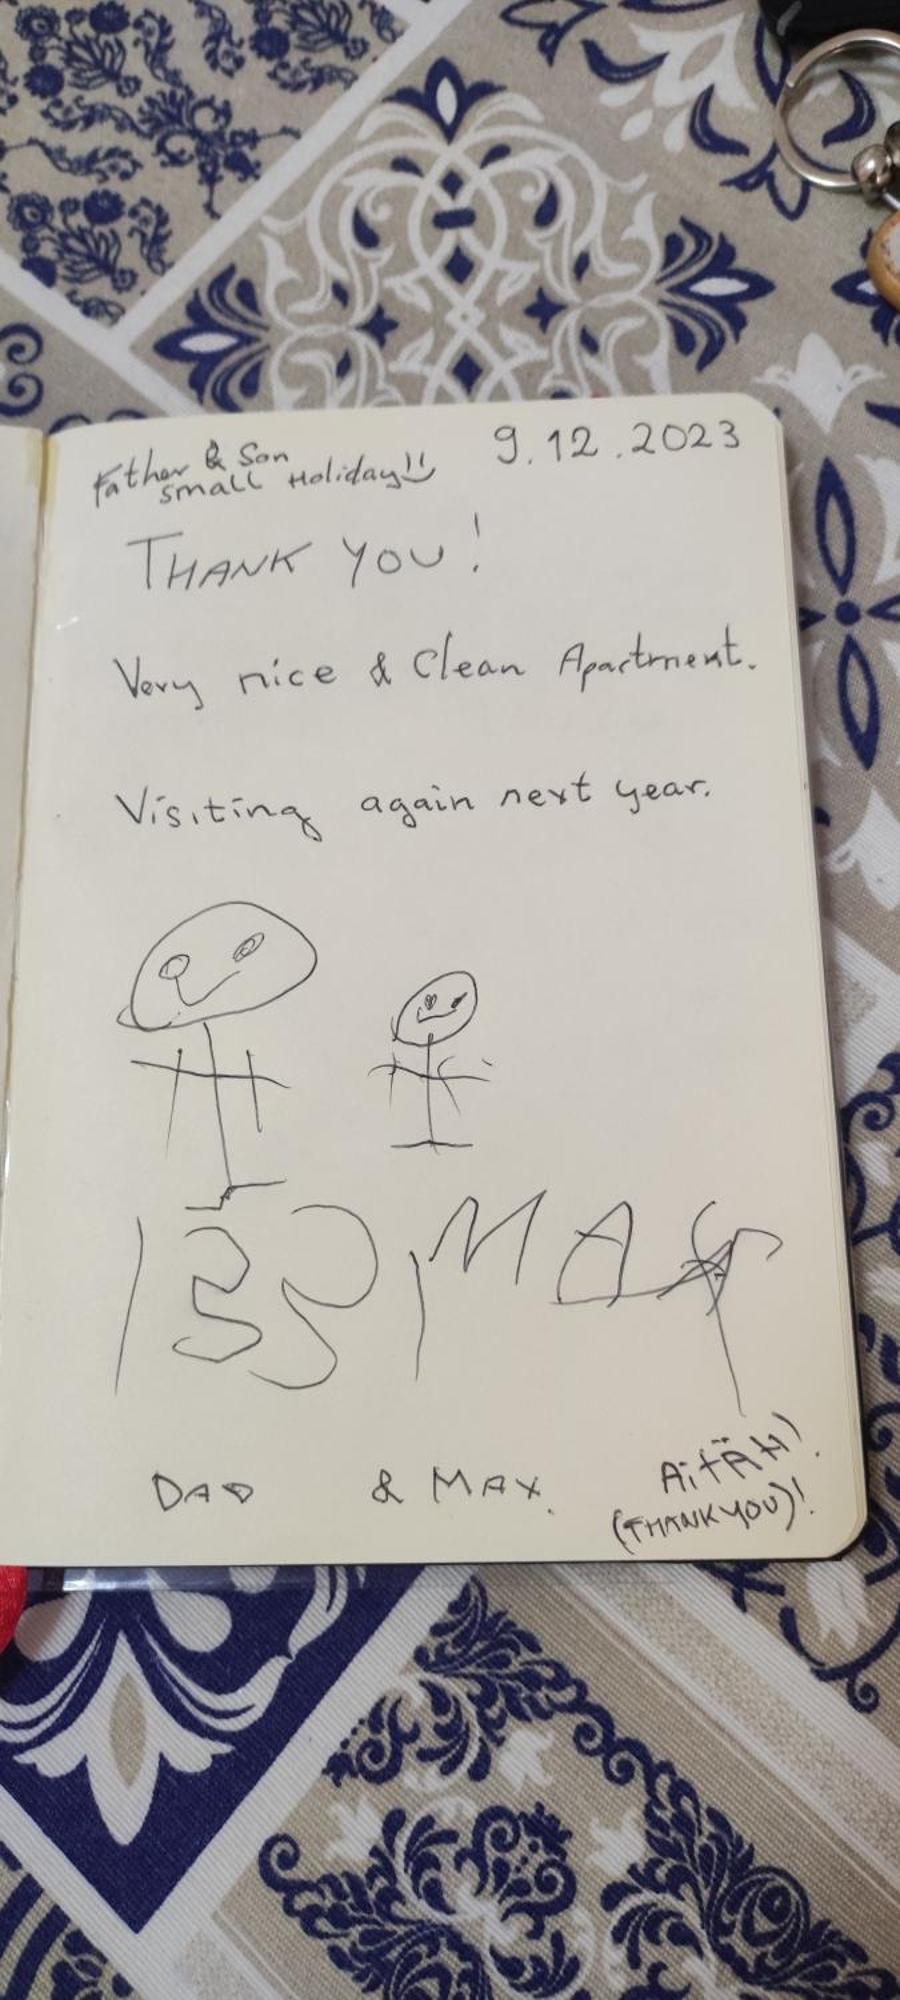 Father & Son 9.12.2023
small Holiday!!
THANK YOU!
Very nice & Clean Apartment.
Visiting again next year.
MAX
DAD & MAX.
AiTÄH!
(THANK YOU)!